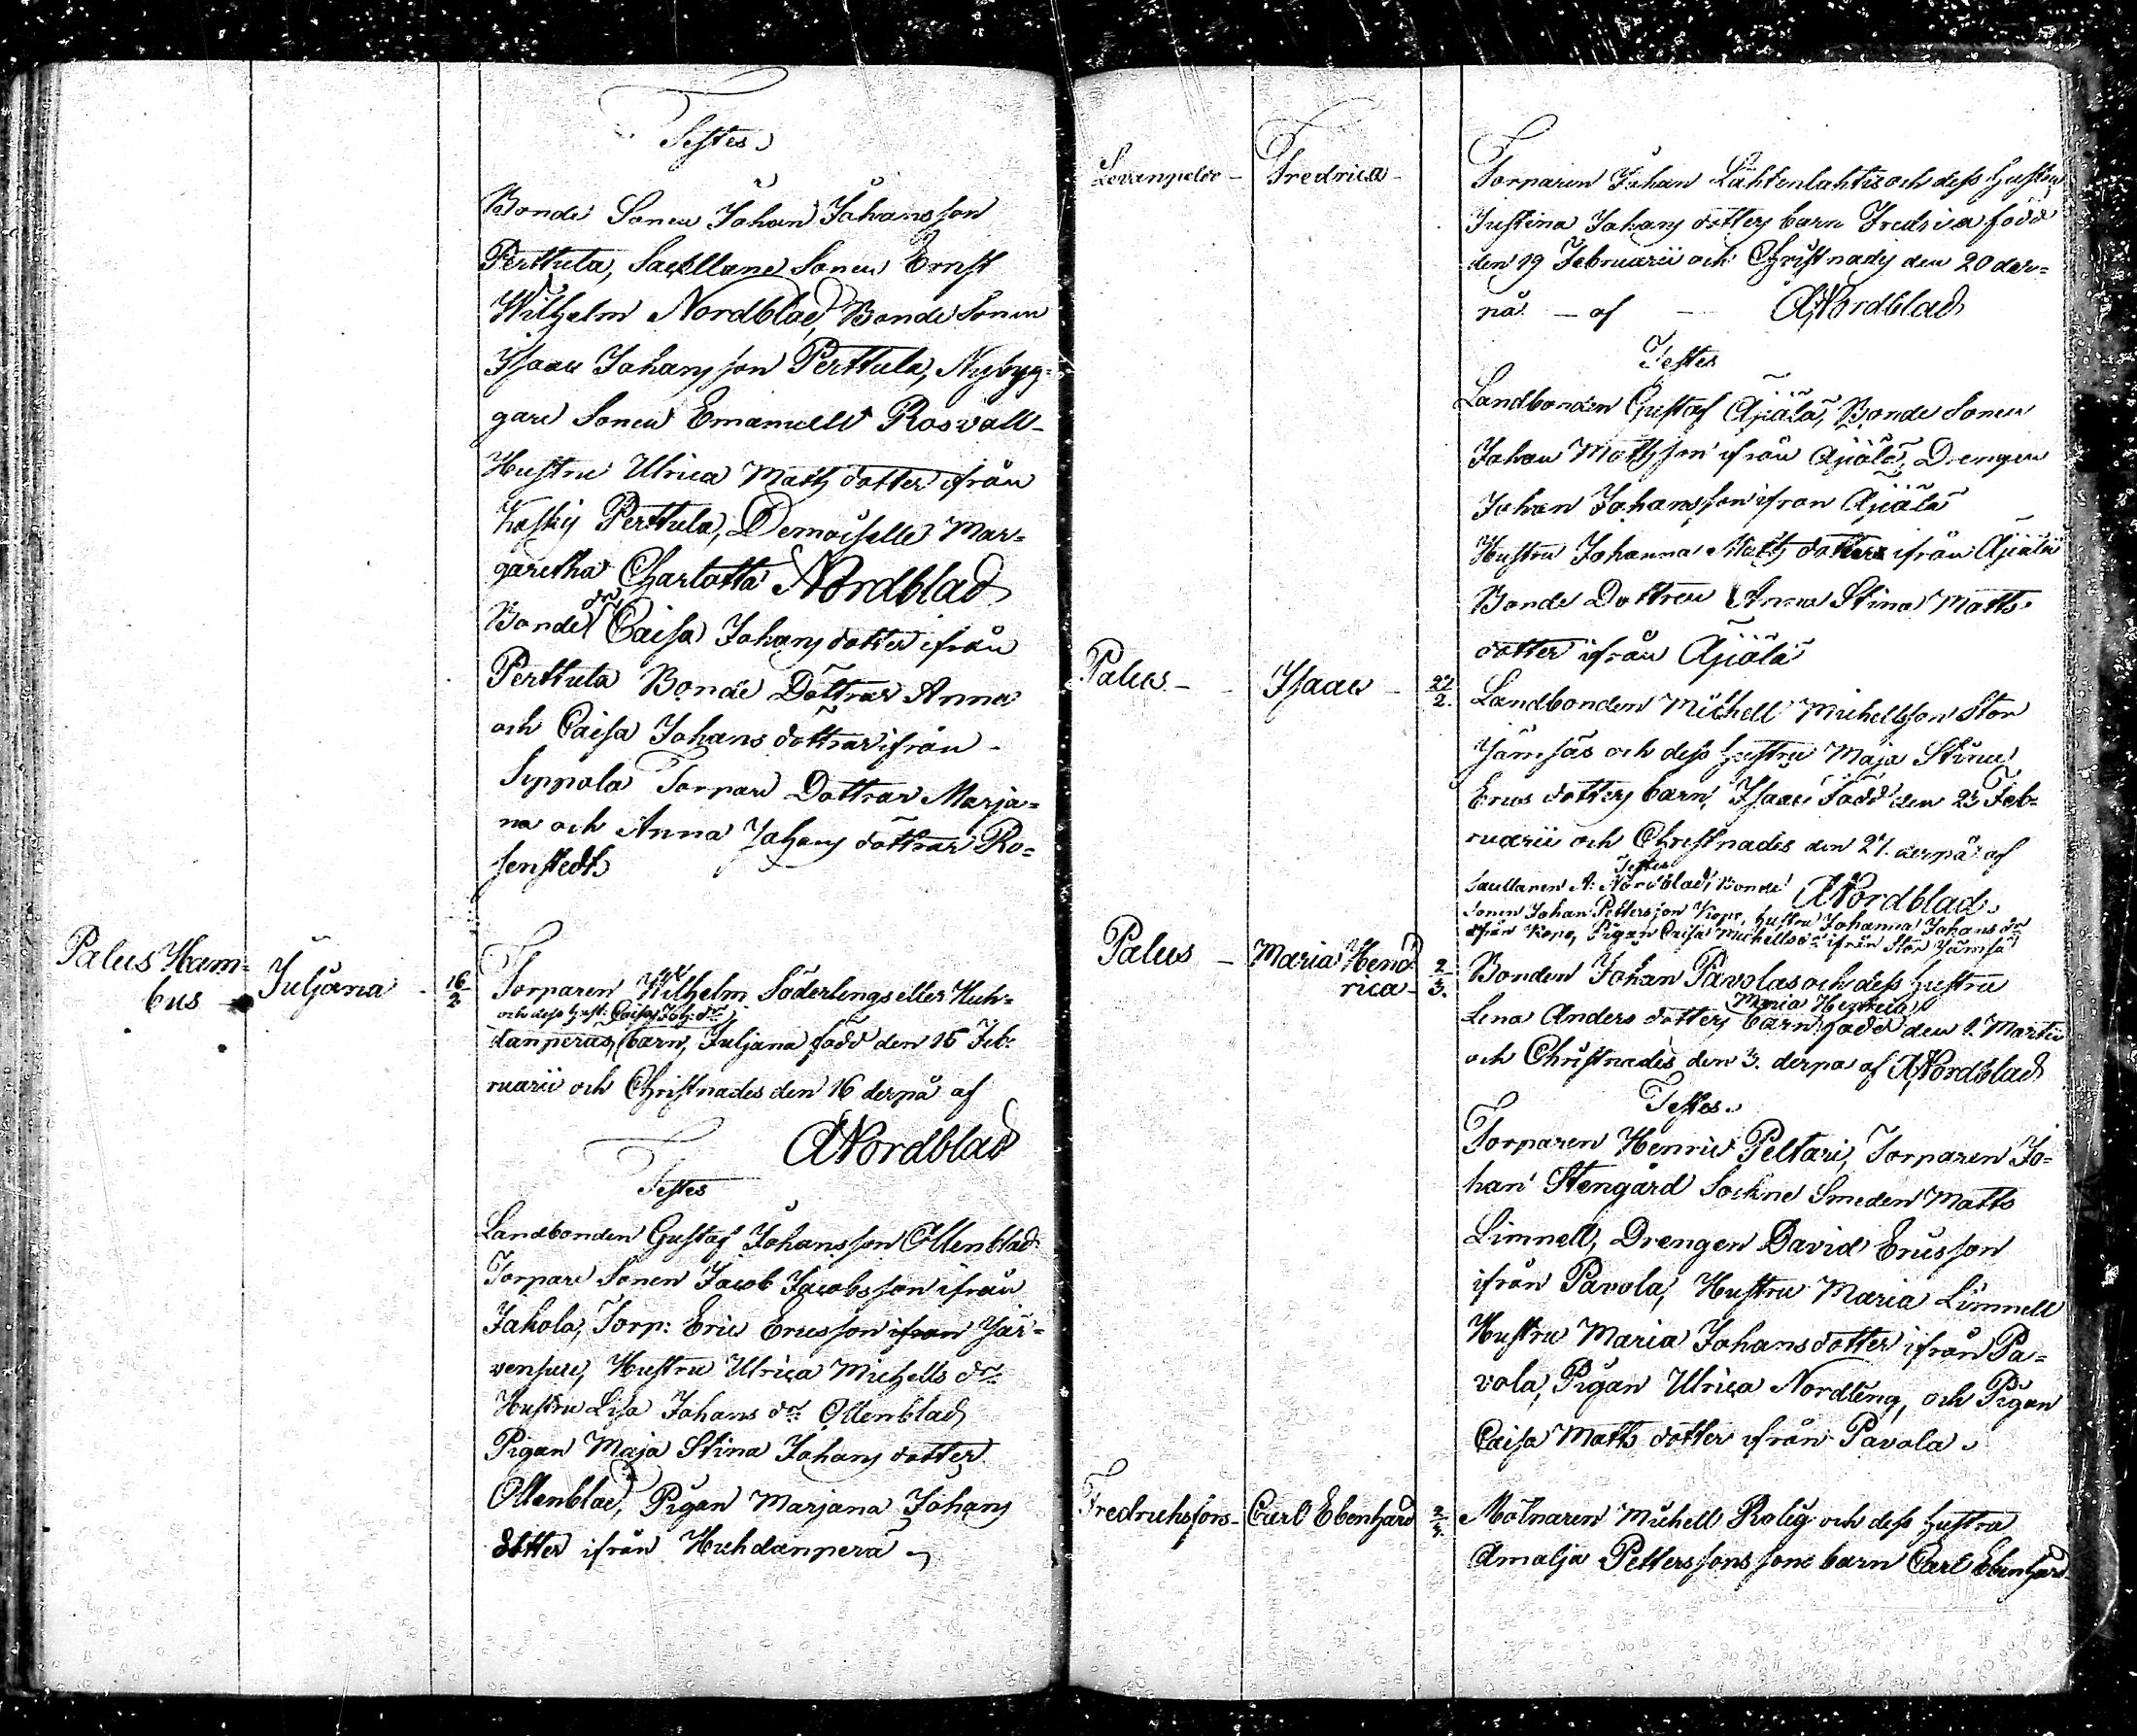 Testes
Bonde Sonen Johan Johansson
Perttula, Sacellane Sonen Ernst
Wilhelm Nordblad, Bonde Sonen
Isaac Johansson Perttula, Nybyg=
gare Sonen Emanuell Rosvall
Hustru Ulrica Matts dotter ifrån
Koskij Perttula, Demoiselle Mar=
garetha Charlotta Nordblad
Bonde dr Caisa Johans dotter ifrån
Perttula Bonde Döttrar Anna
och Caisa Johans döttrar ifrån
Seppola Torpare Dottrar Marja=
na och Anna Johans döttrar Ro=
senstedt
Palus Ham=
bus - Juljana - 16/2
Torparen Wilhelm Söderlings eller Huh=
och dess hust: Caisa Joh: dr
danperäs, barn, Juljana född den 15 Feb=
ruarii och Christnades den 16 derpå af
ANordblad
Testes
Landbonden Gustaf Johansson Ollenblad
Torpare Sonen Jacob Jacobsson ifrån
Jakola, Torp: Eric Ericsson ifrån Jär=
vensuu, Hustru Ulrica Michells dr
Hustru Lisa Johans dr Ollenblad
Pigan Maja Stina Johans dotter
Ollenblad, Pigan Marjana Johans
dotter ifrån Huhdanperä
Levanpelto - Fredrica -
Torparen Johan Lähtenlahtis och dess hustru
Justina Johans dotters barn Fredrica född
den 19 Februarii och Christnades den 20 der=
på - af - ANordblad
Testes
Landbonden Gustaf Äjälä, Bonde Sonen
Johan Mattsson ifrån Äjälä, Drengen
Johan Johansson ifron Äjälä
Hustru Johanna Matts dotter ifrån Äjälä
Bonde Dottren Anna Stina Matts
dotter ifrån Äjälä
Palus - Isaac - 27/2.
Landbonden Michell Michellsson Stor
Jämsäs och dess hustru Maja Stina
Erics dotters barn, Isaac född den 23 Feb=
ruarii och Christnades den 27. derpå af
Testes
Sacellanen A: Nordblad, Bonde ANordblad
Sonen Johan Pettersson Kopo, hustru Johanna Johans dr
ifrån Kopo, Pigan Caisa Michells dr ifrån Stor Jämsä
Palus - Maria Hend
rica - 2/3.
Bonden Johan Pavolas och dess hustru
Maria Henrica
Lena Anders dotters barn född den 2. Martii
och Christnades den 3. derpå af ANordblad
Testes
Torparen Henric Peltari, Torparen Jo=
han Stengård Sockne Smeden Matts
Limnell, Drengen David Ericsson
ifrån Pavola, Hustru Maria Limnell
Hustru Maria Johansdotter ifrån Pa=
vola, Pigan Ulrica Nordling, och Pigan
Caisa Matts dotter ifrån Pavola
Fredrichsfors - Carl Ebenhard
Mölnaren Michell Rolig och dess hustru
Amalja Petterssons barn Carl Ebenhard